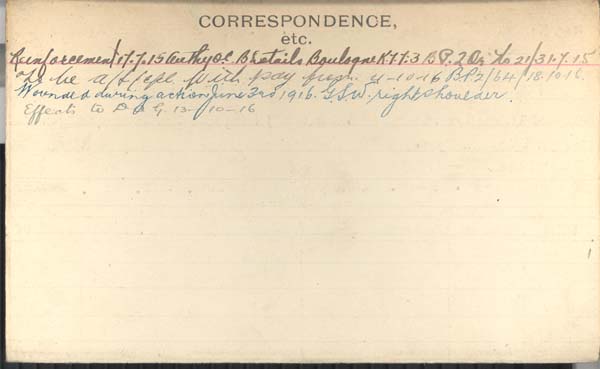 CORRESPONDENCE,
etc.
Reinforcement 17.7.15 Authy O.C. Details Boulogne K.1.7.3 B.P. 2 Or. No 21/31.7.15
To be a/L/Cpl. With pay from 4-10-16 BP2/64/18.10.16.
Wounded during action June 3rd 1916. G.S.W. right shoulder.
Effects to D.A.G. 13-10-16